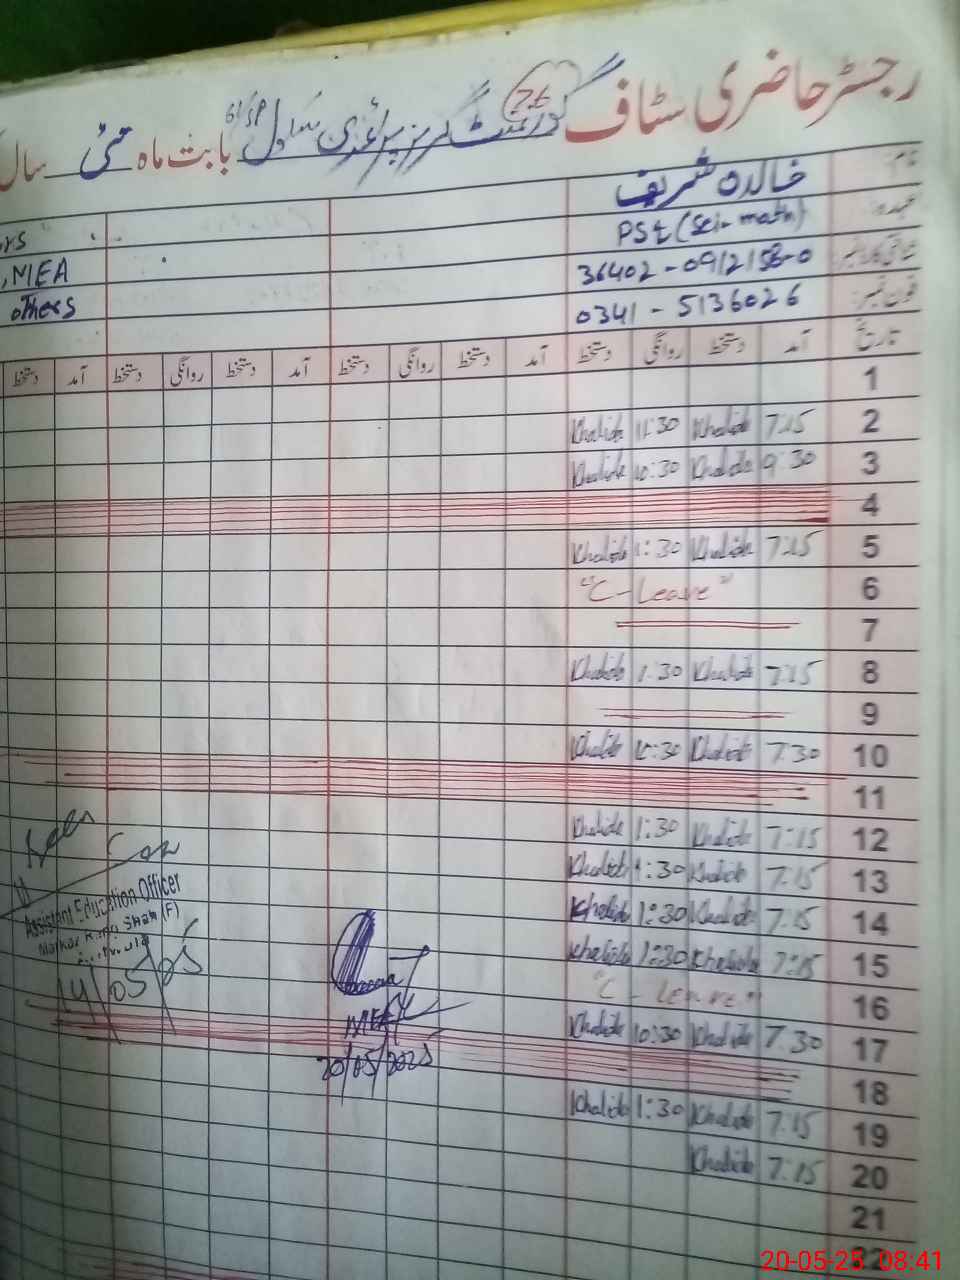 رجسٹر حاضری سٹاف گورنمنٹ گرلز پرائمری سکول 61/SP بابت ماہ مئی سال
26
نام خالدہ شریف
عہدہ: PST (Sci-math)
rs
شناختی کارڈ نمبر 36402-0912158-0
, MEA
فون نمبر: 0341-5136026
others
تاریخ آمد دستخط روانگی دستخط آمد دستخط روانگی دستخط آمد دستخط روانگی دستخط آمد دستخط
1
2 7:15 Khalida 11:30 Khalida
3 9:30 Khalida 10:30 Khalida
4
5 7:15 Khalida 1:30 Khalida
6 "C-Leave"
7
8 7:15 Khalida 1:30 Khalida
9
10 7:30 Khalida 10:30 Khalida
11
12 7:15 Khalida 1:30 Khalida
13 7:15 Khalida 1:30 Khalida
14 7:15 Khalida 1:30 Khalida
15 7:15 Khalida 1:30 Khalida
16 "C-Leave"
17 7:30 Khalida 10:30 Khalida
18
19 7:15 Khalida 1:30 Khalida
20 7:15 Khalida
21
22
Assistant Education Officer
Markaz Shah (F)
14/05/25
MEA
20/05/2025
20-05-25 08:41